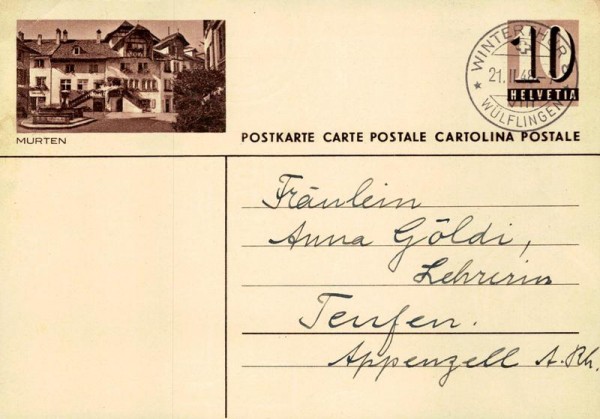 MURTEN
POSTKARTE CARTE POSTALE CARTOLINA POSTALE
10
HELVETIA
WINTERTHUR
21. II. 48
VIII
WÜLFLINGEN
Fräulein
Anna Göldi,
Lehrerin
Teufen.
Appenzell A. Rh.